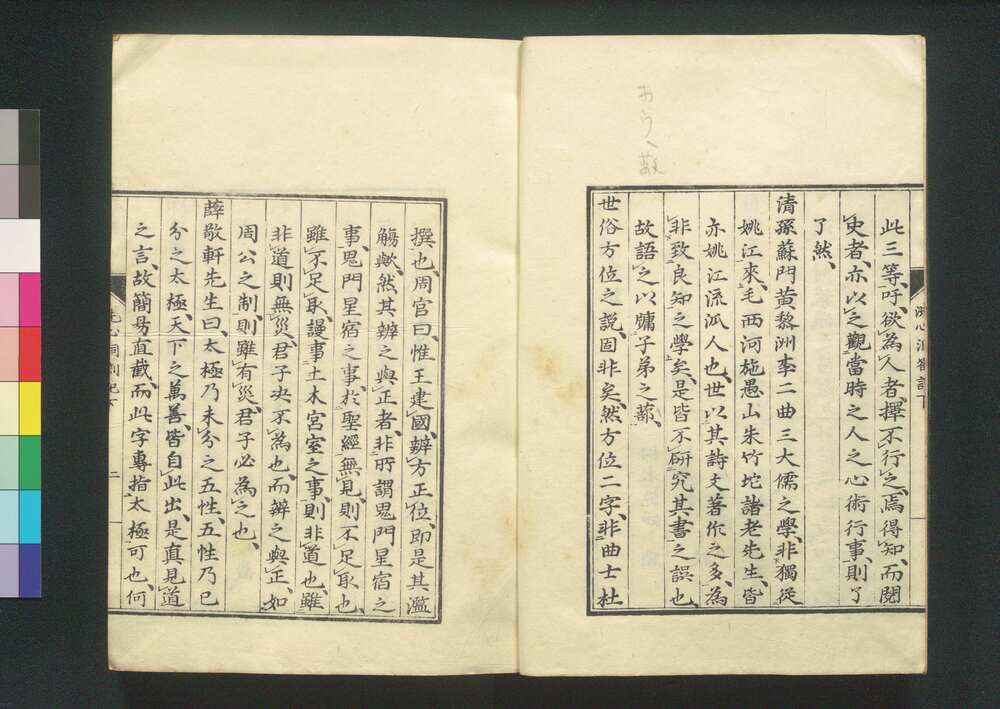 此三等吁、欲為人者、擇不行之、焉得知、而閱
史者、亦以之觀當時之人之心術行事、則了
了然、
清孫蘇門黃黎洲李二曲三大儒之學、非獨從
姚江來、毛西河施愚山朱竹垞諸老先生、皆
亦姚江流派人也、世以其詩文著作之多、為
非致良知之學矣、是皆不研究其書之誤也、
故語之以牖子弟之蔀、
世俗方位之說、固非矣、然方位二字、非曲士杜
撰也、周官曰、惟王建國、辨方正位、即是其濫
觴歟、然其辨之與正者、非所謂鬼門星宿之
事、鬼門星宿之事、於聖經無見、則不足取也、
雖不足取、謾事土木宮室之事、則非道也、雖
非道則無災、君子決不為也、而辨之與正、如
周公之制、則雖有災、君子必為之也、
薛敬軒先生曰、太極乃未分之五性、五性乃已
分之太極、天下之萬善、皆自此出、是真見道
之言、故簡易直截、而此字專指太極可也、何
洗心洞劄記下
二